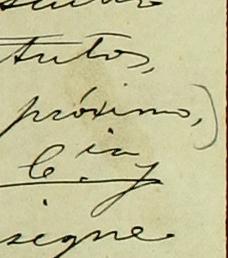 tutos,
próximo,)
C.ia y
signe